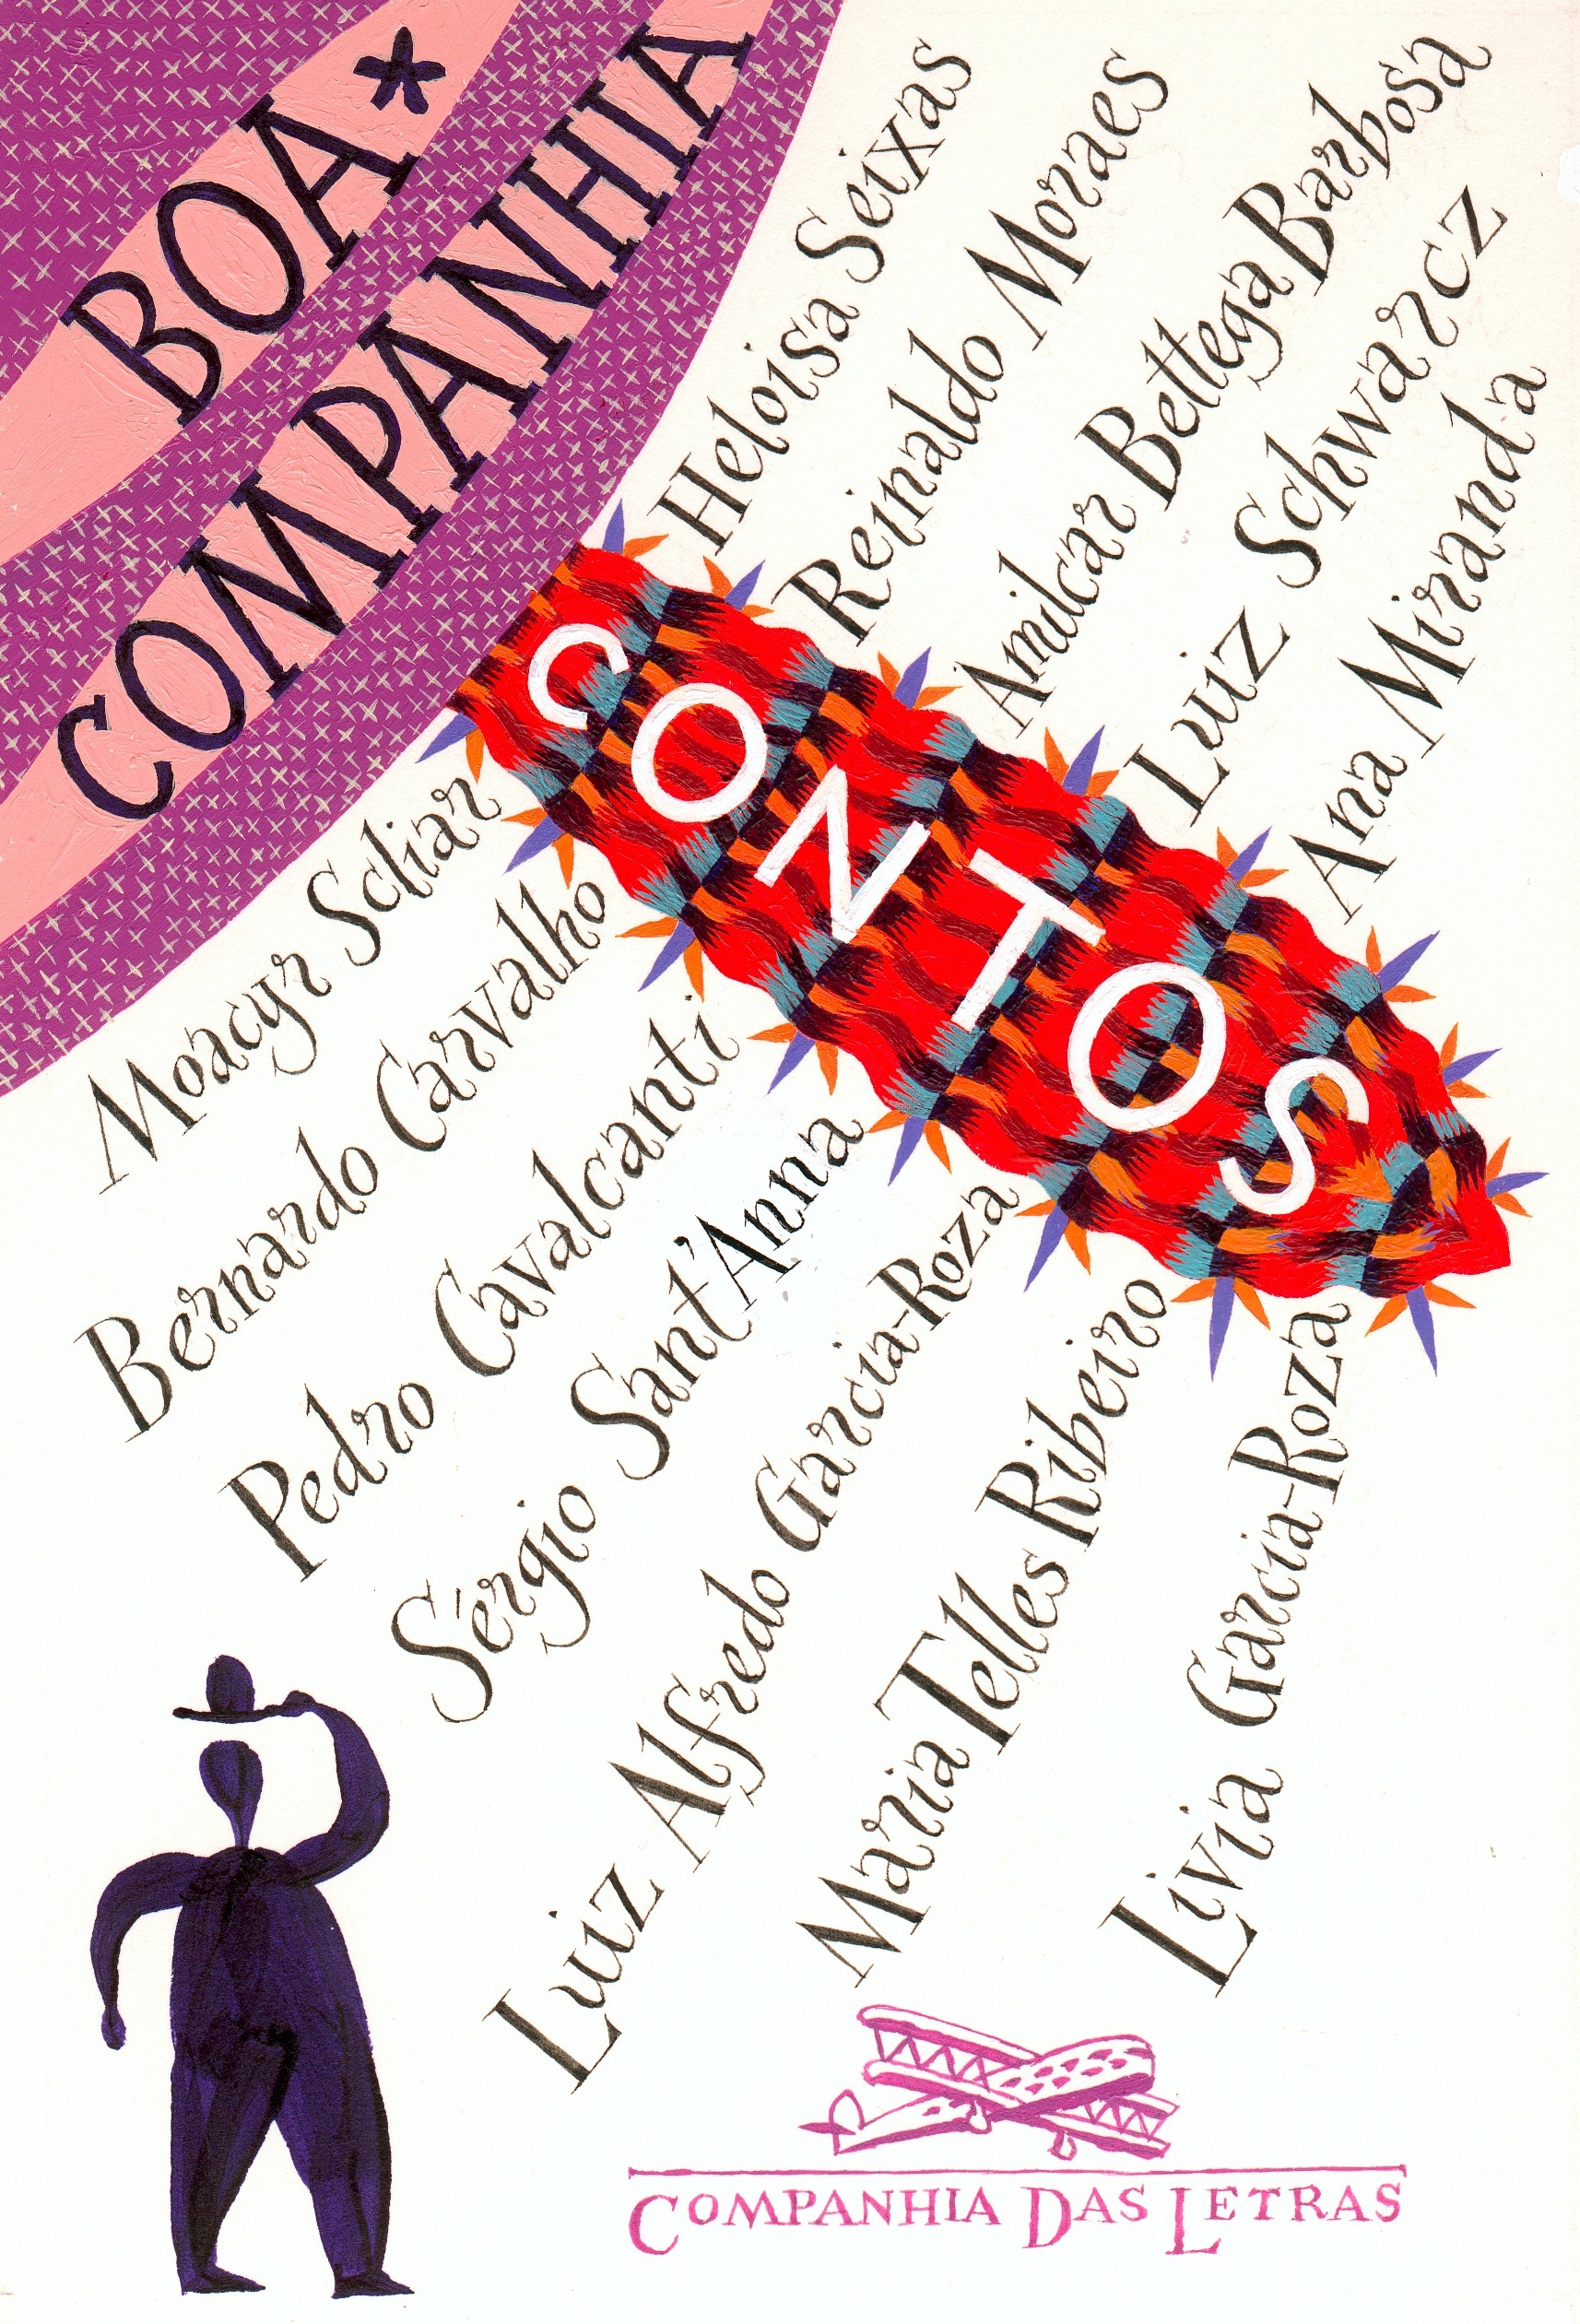 BOA
COMPANHIA
CONTOS
Heloisa Seixas
Reinaldo Moraes
Amilcar Bettega Barbosa
Luiz Schwarcz
Ana Miranda
Moacyr Scliar
Bernardo Carvalho
Pedro Cavalcanti
Sérgio Sant'Anna
Luiz Alfredo Garcia-Roza
Maria Telles Ribeiro
Livia Garcia-Roza
COMPANHIA DAS LETRAS